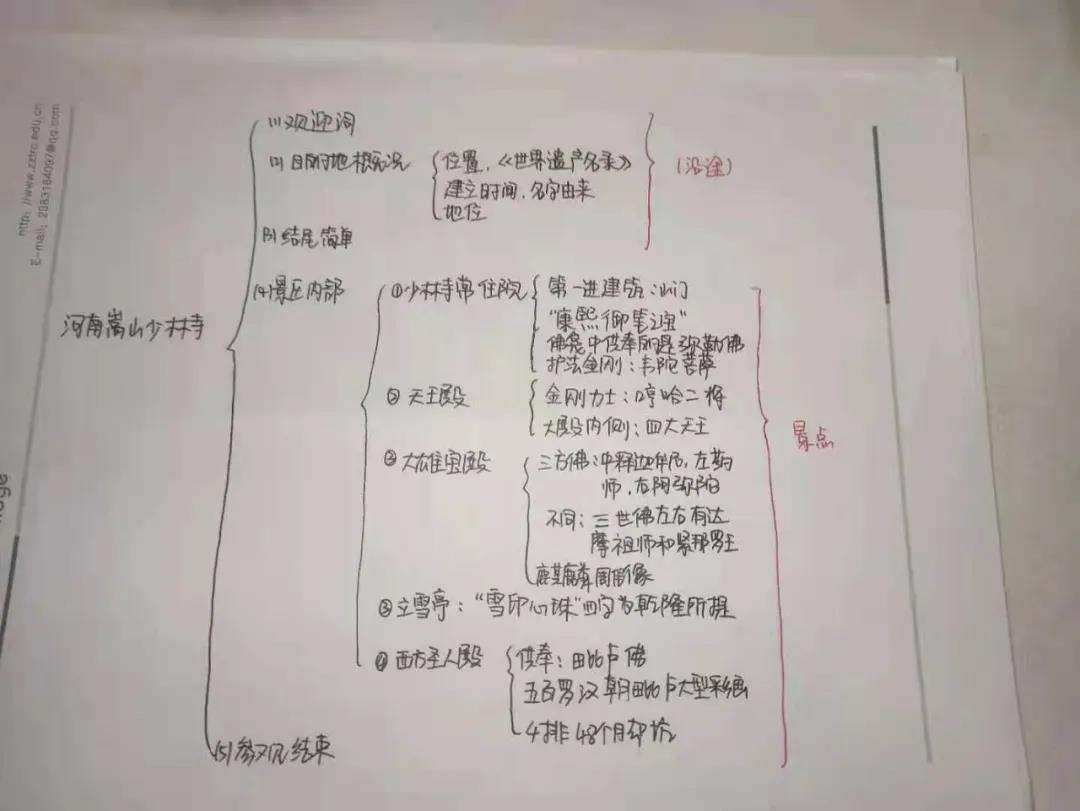 http://www.zztrc.edu.cn
E-mail: 2983184097@qq.com
河南嵩山少林寺
(1)欢迎词
(2)目的地概况
位置,《世界遗产名录》
建立时间,名字由来
地位
(3)结尾简单
(沿途)
(4)景区内部
①少林寺常住院
第一进建筑:山门
"康熙御笔之宝"
佛龛中供奉的是弥勒佛
护法金刚:韦陀菩萨
②天王殿
金刚力士:哼哈二将
大殿内侧:四大天王
②大雄宝殿
三方佛:中释迦牟尼,左药
师,右阿弥陀
不同:三世佛左右有达
摩祖师和紧那罗王
麒麟周围像
③立雪亭:"雪印心珠"四字为乾隆所提
④西方圣人殿
供奉:毗卢佛
五百罗汉朝毗卢大型彩画
4排48个脚坑
景点
(5)参观结束